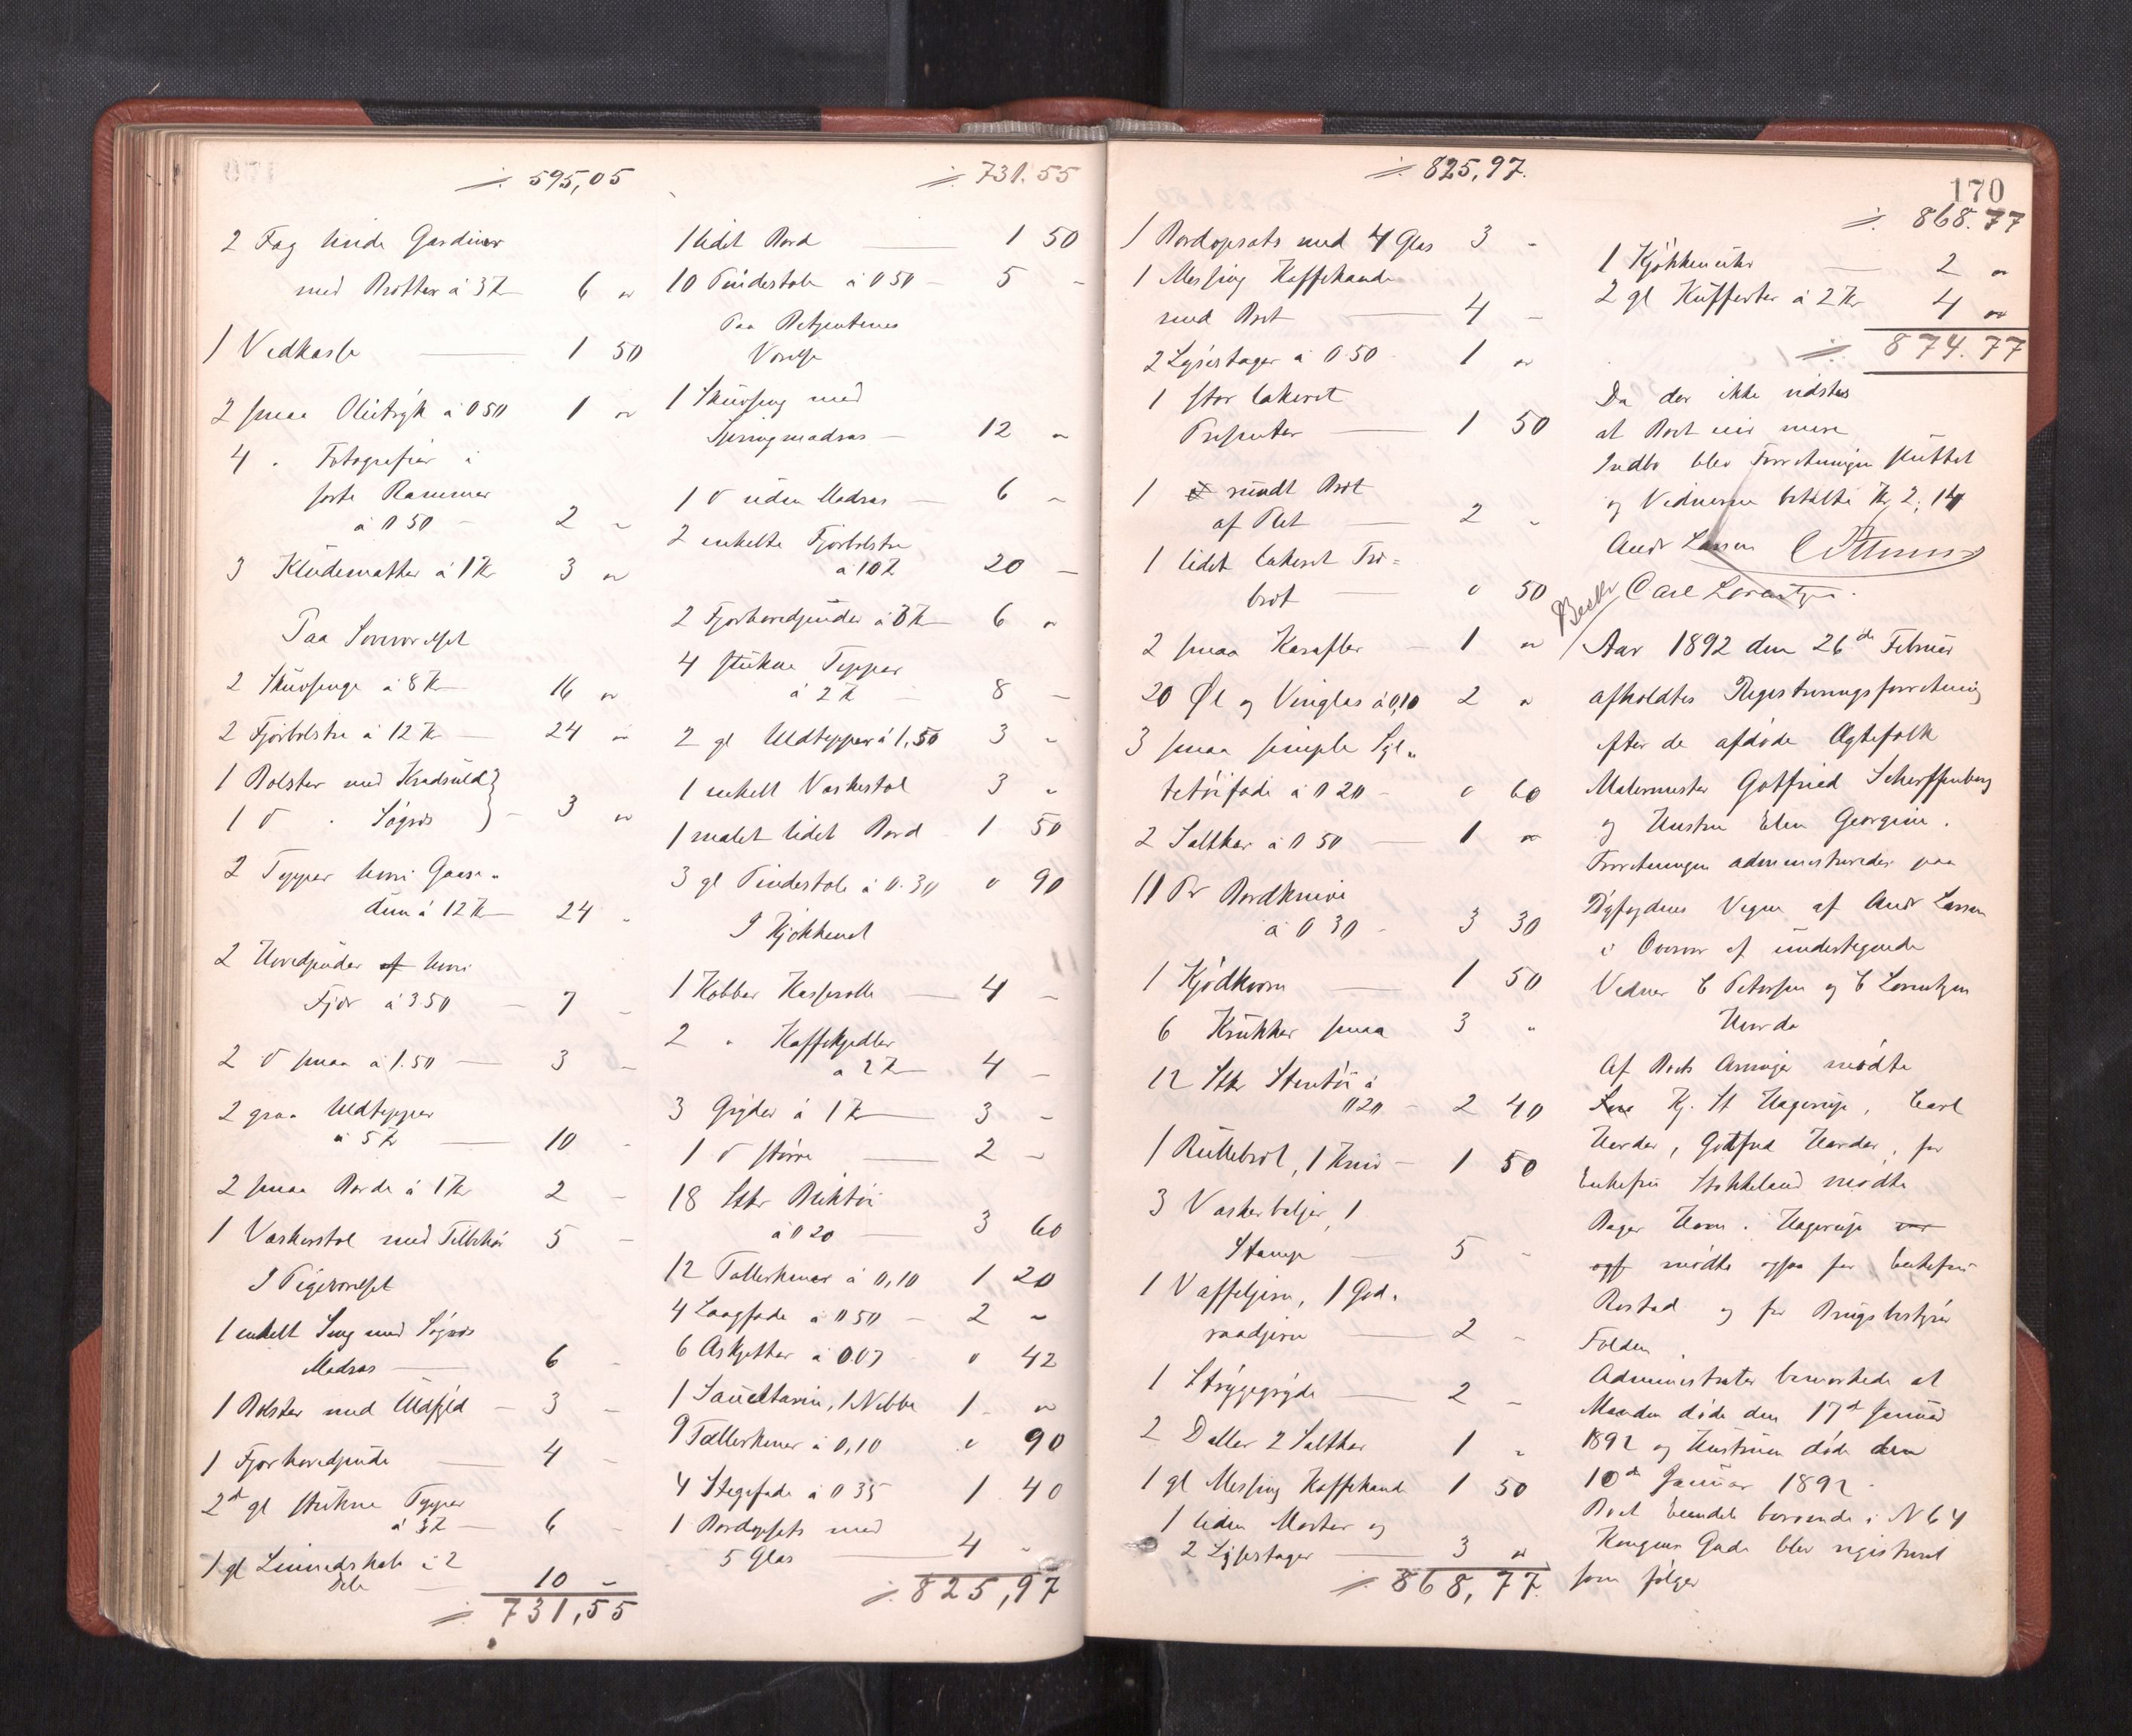 ÷ 595,05
2 Fag hvide Gardiner
med Brætter á 3 Kr — 6 "
1 Vedkasse — 1 50
2 smaa Olietryk á 0 50 1 "
4 " Fotografier i
sorte Rammer
á 0 50 — 2 "
3 Kludematter á 1 Kr 3 "
Paa Soveværelset
2 Skuvsenge á 8 Kr — 16 "
2 Fjærbolstre á 12 Kr — 24 "
1 Bolster med Krøduld
1 do " Søgræs } — 3 "
2 Tepper hvori Gaase-
dun á 12 Kr — 24 "
2 Hovedputer hvori
Fjær á 3 50 — 7 "
2 do smaa á 1.50 — 3 "
2 graa Uldtepper
á 5 Kr — 10 "
2 smaa Borde á 1 Kr 2 "
1 Vaskerstol med Tilbehør 5 "
I Pigeværelset
1 enkelt Seng med Søgræs
Madras — 6 "
1 Bolster med Uldfyld — 3 "
1 Fjærhovedpude — 4 "
2 gl stukne Tepper
á 3 Kr — 6 "
1 gl Linnedskab i 2
Dele — 10 "
÷ 731,55
÷ 731.55
1 lidet Bord — 1 50
10 Pindestole á 0 50 — 5 "
Paa Betjentenes
Værelse
1 Skuvseng med
Springmadras — 12 "
1 do uden Madras — 6 "
2 enkelte Fjærbolstre
á 10 Kr 20 —
2 Fjærhovedpuder á 3 Kr — 6 "
4 stukne Tepper
á 2 Kr — 8 —
2 gl Uldtepper á 1,50 3 "
1 enkelt Vaskestol 3 "
1 malet lidet Bord 1 50
3 gl Pindestole á 0.30 " 90
I Kjøkkenet
1 Kobber Kasserolle — 4 "
2 " Kaffekjedler
á 2 Kr — 4 —
3 Gryder á 1 Kr — 3 "
1 do større — 2 "
18 Stkr Bliktøi
á 0 20 — 3 60
12 Tallerkener á 0,10 1 20
4 Laagfade á 0 50 — 2 "
6 Askjetter á 0.07 " 42
1 Sauceterrin, 1 Nebbe 1 "
9 Tallerkener á 0,10 " 90
4 Stegefade á 0 35 1 40
1 Bordopsats med
5 Glas — 4 "
÷ 825,97
÷ 825,97.
1 Bordopsats med 4 Glas 3 "
1 Messing Kaffekande
med Bret — 4 —
2 Lysestager á 0 50 — 1 "
1 stor lakeret
Presenter — 1 50
1 rundt Bret
af Plet — 2 "
1 lidet lakeret Træ=
bret — " 50
2 smaa Karafler — 1 "
20 Øl og Vinglas á 0,10 2 "
3 smaa simple Syl-
tetøifade á 0 20 — " 60
2 Saltkar á 0 50 — 1 "
11 Pr Bordknive
á 0 30 — 3 30
1 Kjødkværn — 1 50
6 Krukker smaa 3 "
12 Stkr Stentøi á
0 20 — 2 40
1 Rullebræt, 1 Kniv — 1 50
3 Vaskerbaljer, 1
Stampe — 5 "
1 Vaffeljern, 1 God-
raadjern — 2 "
1 Strygegryde — 2 "
2 Daller 2 Saltkar 1 "
1 gl Messing Kaffekand 1 50
1 liden Morter og
2 Lysestager — 3 "
÷ 868,77.
170
÷ 868.77
1 Kjøkkenuhr — 2 "
2 gl Kufferter á 2 Kr 4 "
÷ 874.77
Da der ikke vidstes
at Boet eier mere
Indbo blev Forretningen sluttet
og Vidnerne betalte Kr 2,14
Andr Larsen
Carl Lorentzen.
Aar 1892 den 26de Februar
afholdtes Registreringsforretning
efter de afdøde Ægtefolk
Malermester Gotfried Scherffenberg
og Hustru Elen Georgine.
Forretningen administreredes paa
Byfogdens Vegne af Andr Larsen
i Overvær af undertegnede
Vidner C Petersen og C Lorentzen
Af Boets Arvinger mødte
Kj. St Hagerup, Carl
Harder, Gotfred Harder, for
Enkefru Stokkeland mødte
Bager Hagerup
mødte ogsaa for Enkefru
Rostad og for Brugsbestyrer
Folden.
Administrator bemærkede at
Manden døde den 17de Januar
1892 og Hustruen døde den
10de Januar 1892.
Boet beroende i N 64
Kongens Gade blev registreret
som følger